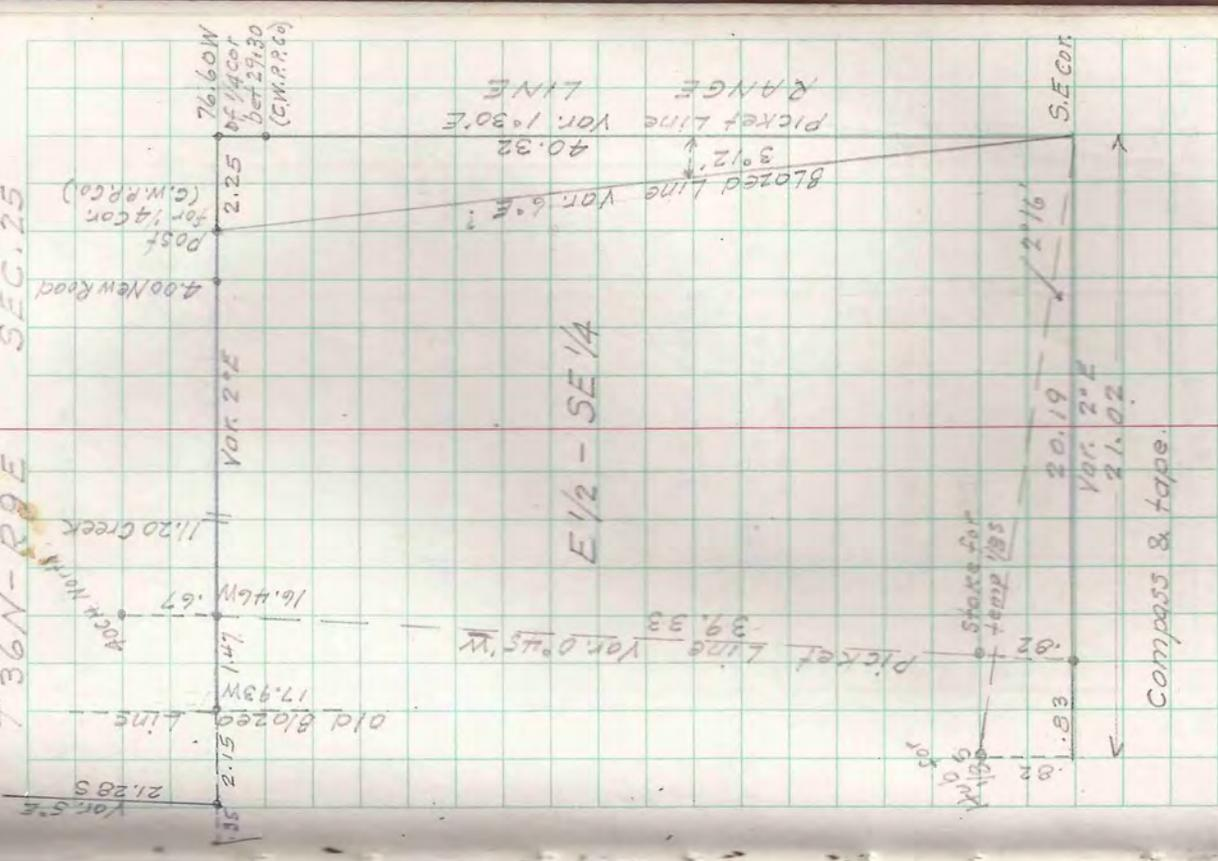 T 36N - R9E SEC. 25
76.60W
of 1/4 Cor
bet 29+30
(C.W.P.P.Co)
2.25
Post
for 1/4 Cor.
(C.W.P.P.Co)
4.00 New Road
Var. 2°E
11.20 Creek
40CH North
.67
16.46W
1.47
17.93W
Old Blazed Line
2.15
21.28 S
Var. 5°E
.35
RANGE LINE
Picket Line Var. 1°30'E
40.32
3°12'
Blazed Line Var. 6°E ?
E 1/2 - SE 1/4
Picket Line Var. 0°45'W
39.33
S.E Cor.
2°16'
20.19
Var. 2°E
21.02
Stake for
temp 1/8 S
.82
.83
for
1/8 S
.82
Compass & tape.